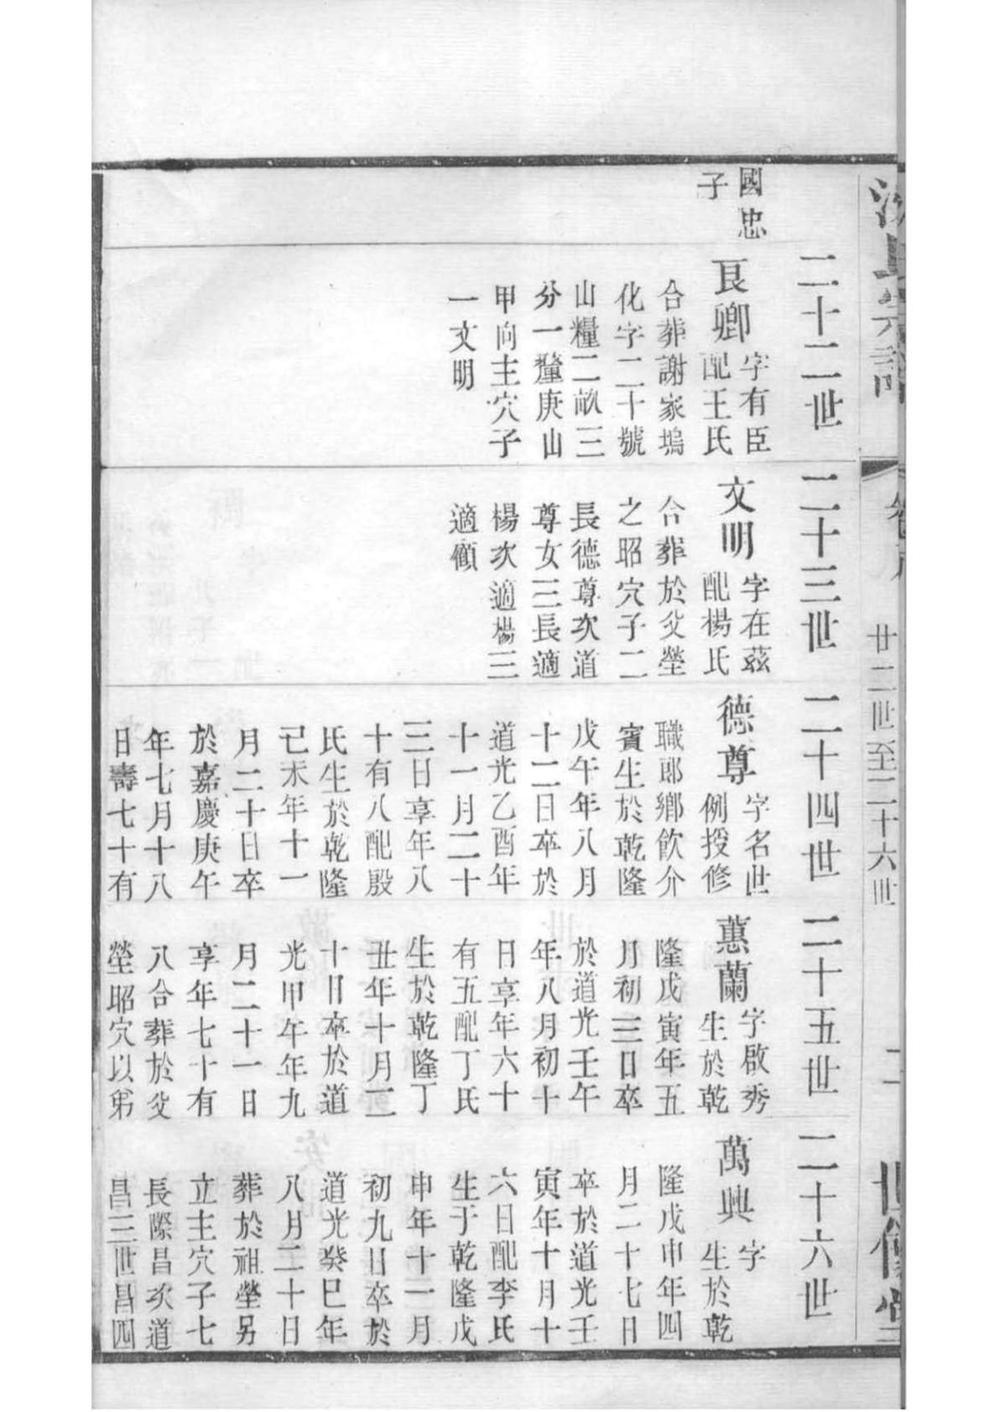 廿二世至二十六世
二
世修堂
國忠
子
二十二世
良卿
字有臣
配王氏
合葬謝家塢
化字二十號
山糧二畝三
分一釐庚山
甲向主穴子
一文明
二十三世
文明
字在茲
配楊氏
合葬於父塋
之昭穴子二
長德尊次道
尊女三長適
楊次適楊三
適顧
二十四世
德尊
字名世
例授修
職郎鄉飲介
賓生於乾隆
戊午年八月
十二日卒於
道光乙酉年
十一月二十
三日享年八
十有八配殷
氏生於乾隆
己未年十一
月二十日卒
於嘉慶庚午
年七月十八
日壽七十有
二十五世
蕙蘭
字啟秀
生於乾
隆戊寅年五
月初三日卒
於道光壬午
年八月初十
日享年六十
有五配丁氏
生於乾隆丁
丑年十月二
十日卒於道
光甲午年九
月二十一日
享年七十有
八合葬於父
塋昭穴以弟
二十六世
萬興
字
生於乾
隆戊申年四
月二十七日
卒於道光壬
寅年十月十
六日配李氏
生于乾隆戊
申年十一月
初九日卒於
道光癸巳年
八月二十日
葬於祖塋另
立主穴子七
長際昌次道
昌三世昌四